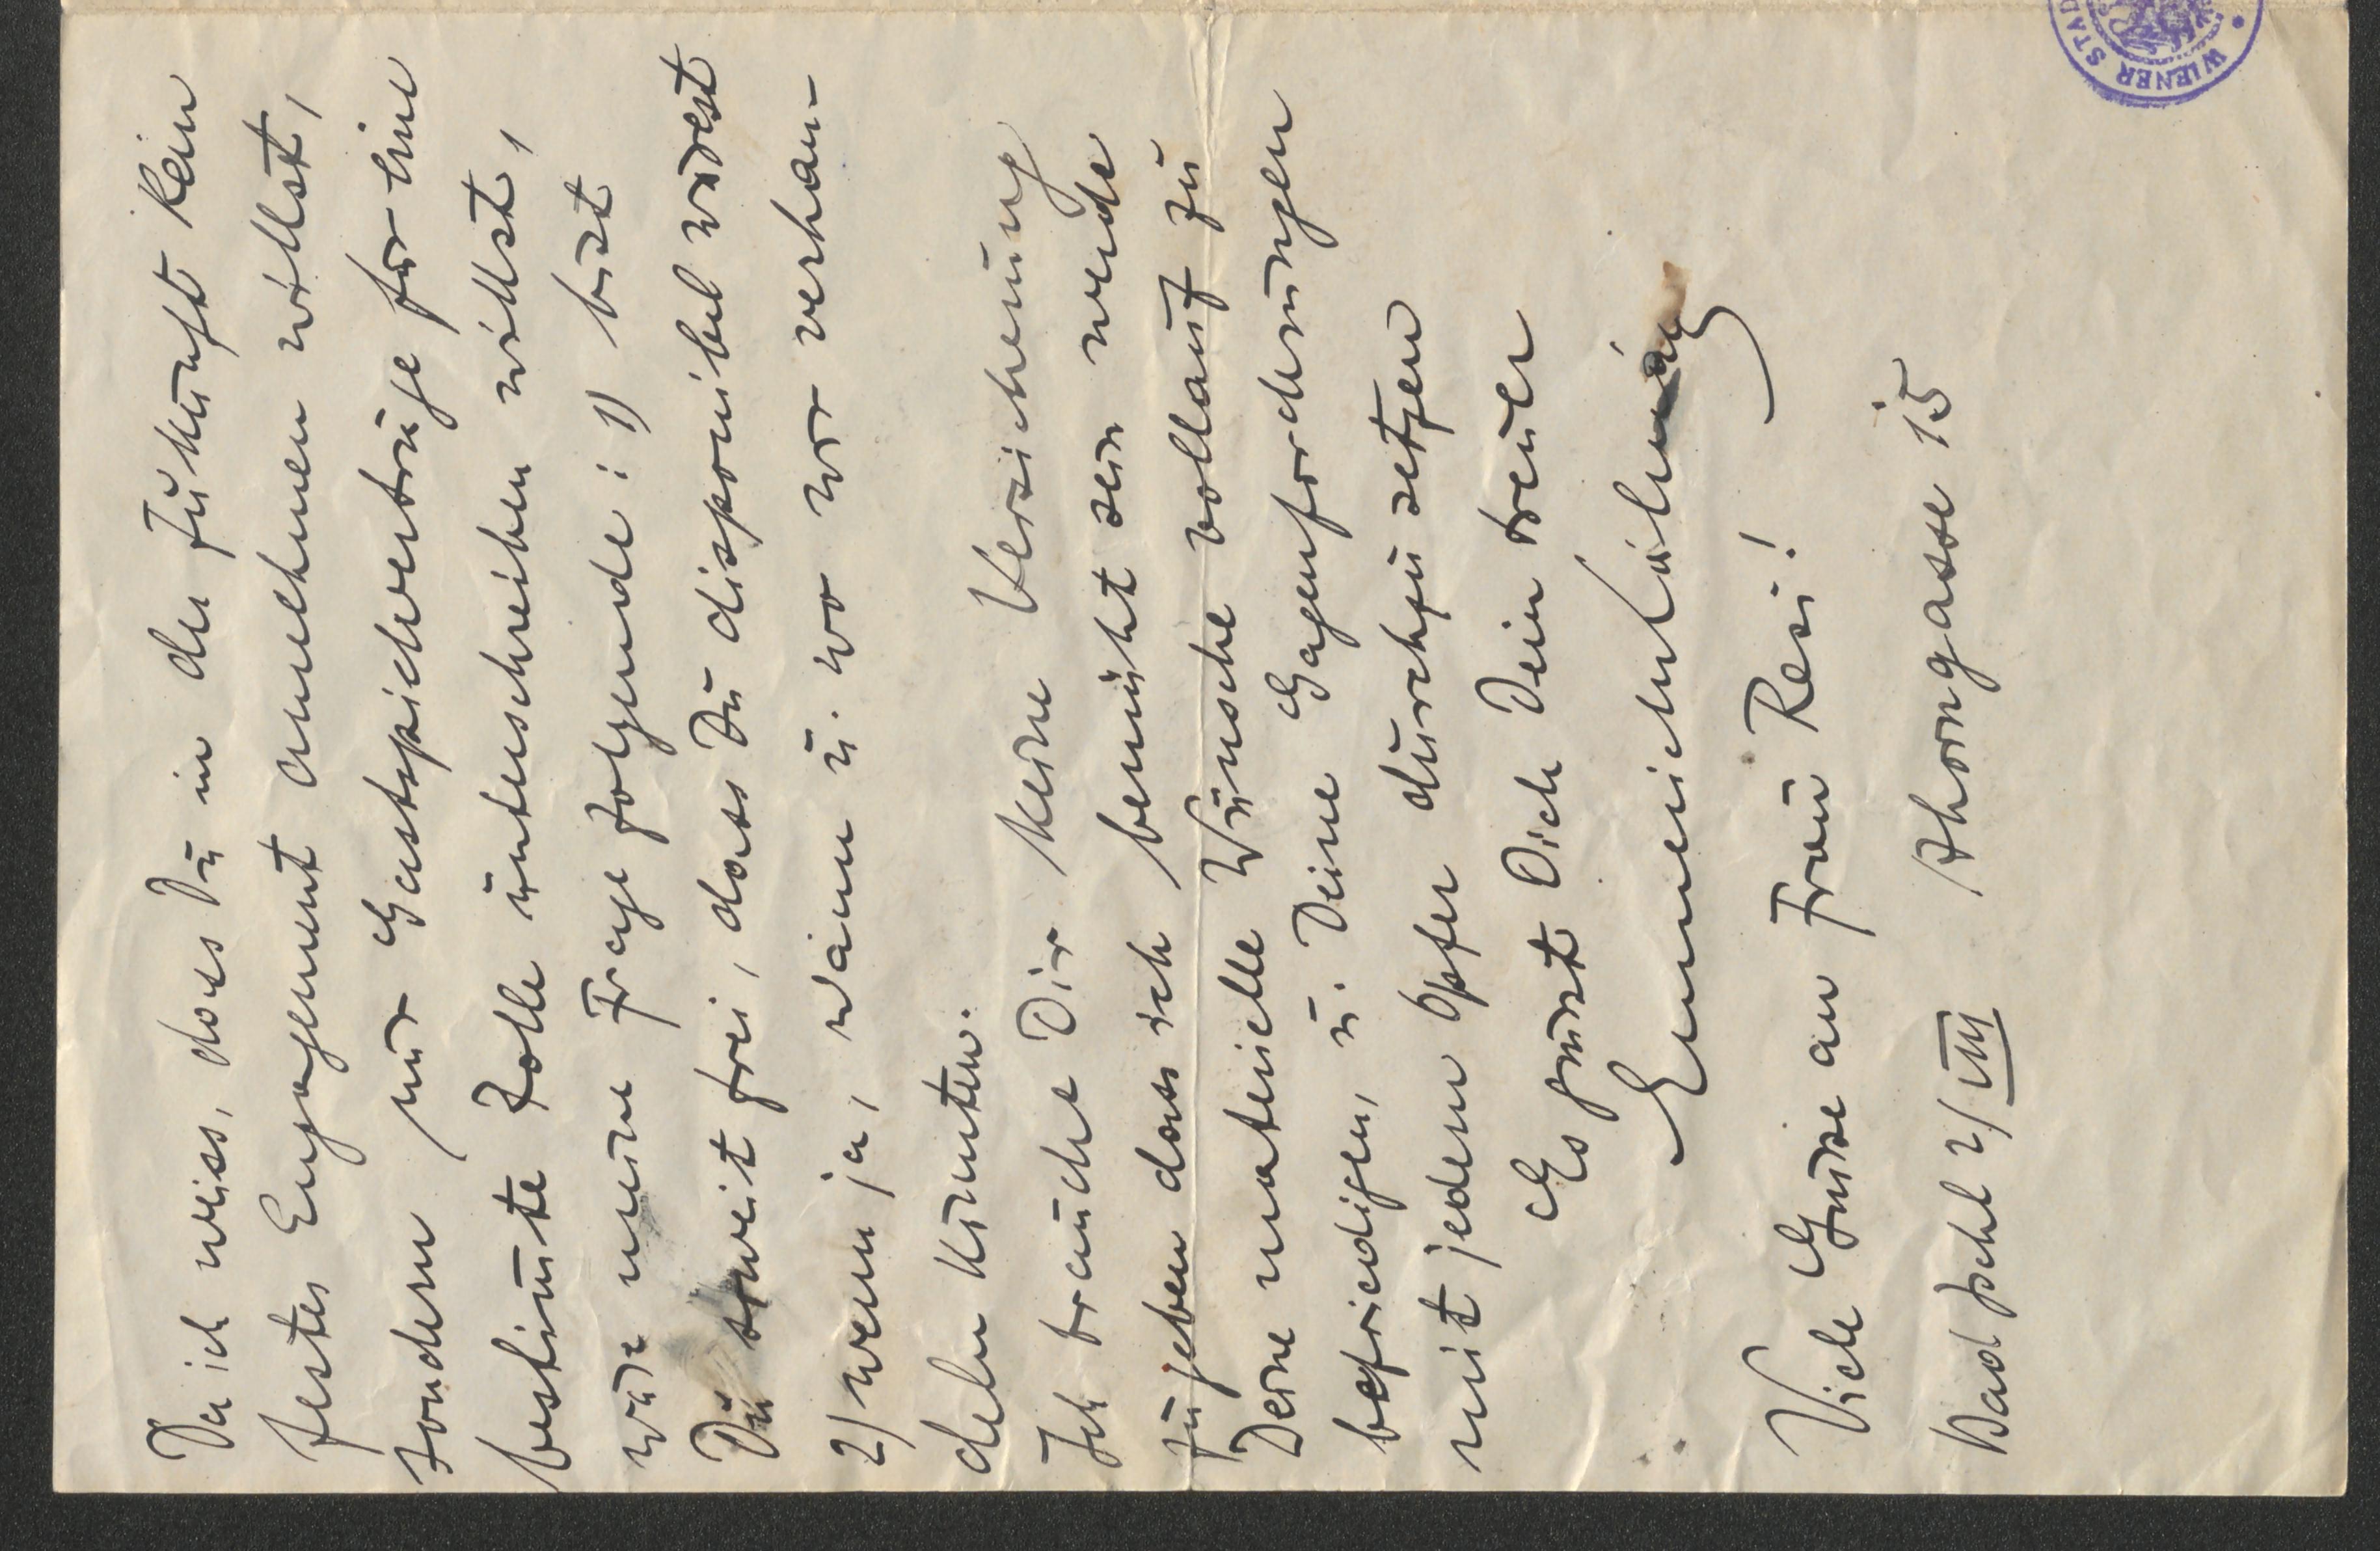 Da ich weiss, dass Du in der Zukunft kein
festes Engagement annehmen willst,
sondern nur Gastspielverträge für eine
bestimmte Rolle unterschreiben willst,
wäre meine Frage folgende: 1) bist
Du soweit frei, dass Du disponibel wärest
2) wenn ja, wann u. wo wir verhan-
deln könnten.
Ich brauche Dir keine Versicherung
zu geben dass ich bemüht sein werde
Deine materielle Wünsche vollauf zu
befriedigen, u. Deine Gagenforderungen
mit jedem Opfer durchzusetzen
Es grüsst Dich Dein treuer
Emmerich Kálmán
Viele Grüsse an Frau Resi!
Bad Ischl 2/VIII
WIENER STAD